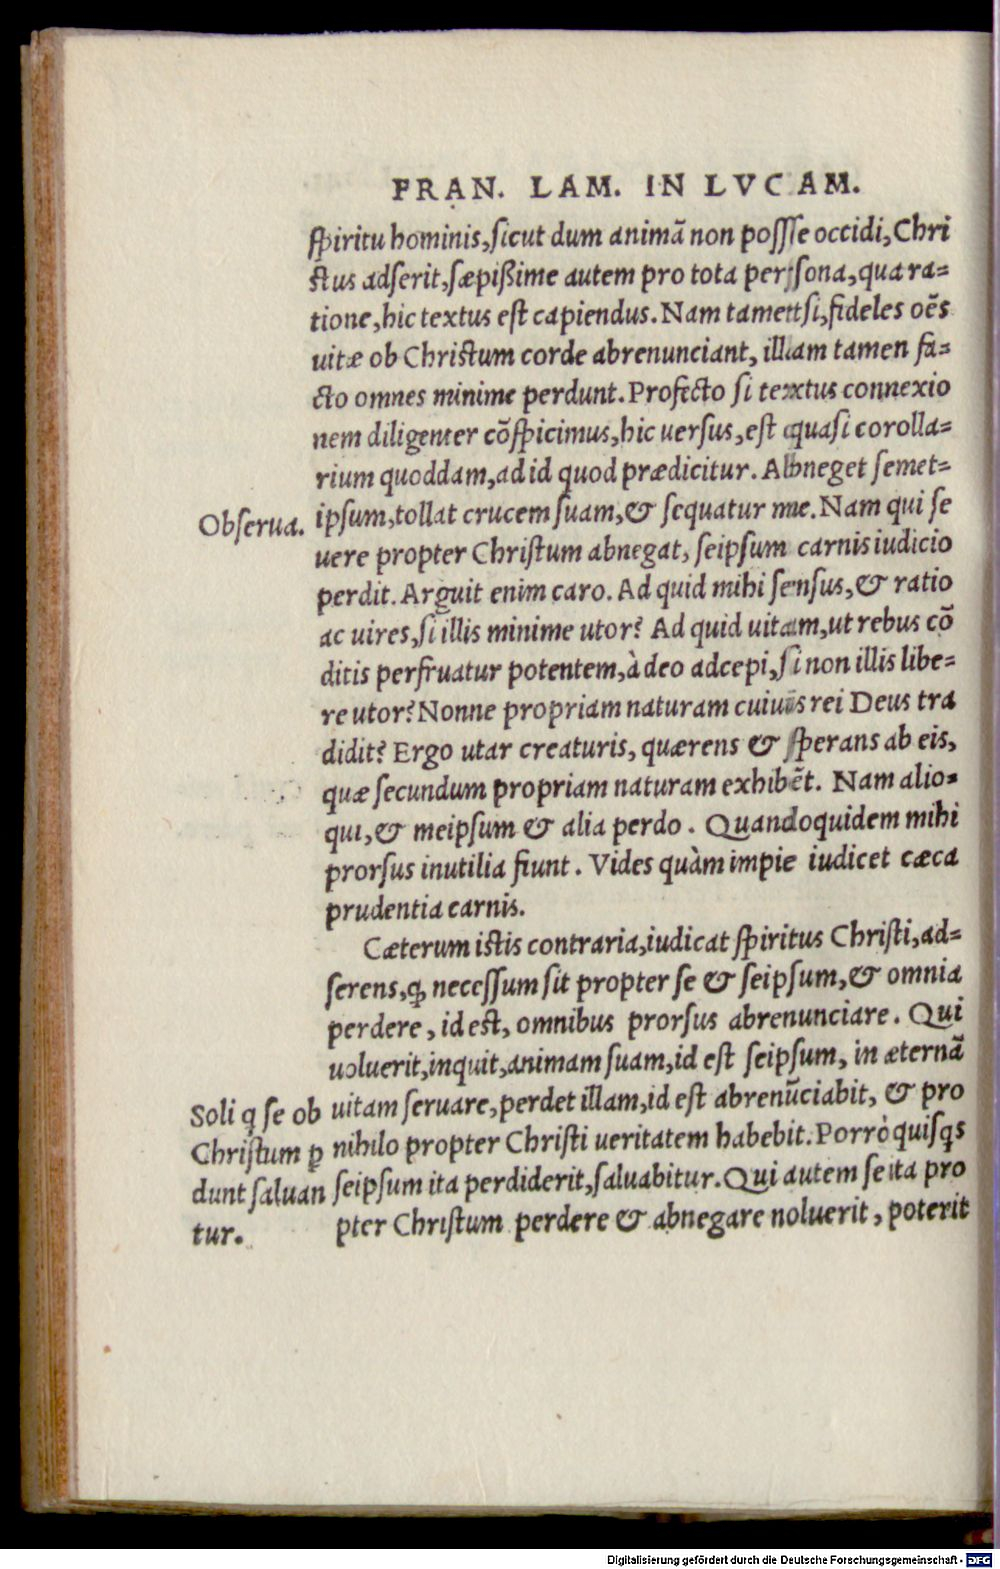 FRAN. LAM. IN LVCAM.
ſpiritu hominis, ſicut dum animā non poſſe occidi, Chri
ſtus adſerit, ſæpißime autem pro tota perſona, qua ra-
tione, hic textus eſt capiendus. Nam tametſi, fideles oēs
uitæ ob Chriſtum corde abrenunciant, illam tamen fa-
cto omnes minime perdunt. Profecto ſi textus connexio
nem diligenter cōſpicimus, hic uerſus, eſt quaſi corolla-
rium quoddam, ad id quod prædicitur. Abneget ſemet-
Obſerua.
ipſum, tollat crucem ſuam, & ſequatur me. Nam qui ſe
uere propter Chriſtum abnegat, ſeipſum carnis iudicio
perdit. Arguit enim caro. Ad quid mihi ſenſus, & ratio
ac uires, ſi illis minime utor? Ad quid uitam, ut rebus cō
ditis perfruatur potentem, à deo adcepi, ſi non illis libe-
re utor? Nonne propriam naturam cuiuis rei Deus tra
didit? Ergo utar creaturis, quærens & ſperans ab eis,
quæ ſecundum propriam naturam exhibēt. Nam alio-
qui, & meipſum & alia perdo. Quandoquidem mihi
prorſus inutilia fiunt. Vides quàm impie iudicet cæca
prudentia carnis.
Cæterum iſtis contraria, iudicat ſpiritus Chriſti, ad-
ſerens, ꝙ neceſſum ſit propter ſe & ſeipſum, & omnia
perdere, id eſt, omnibus prorſus abrenunciare. Qui
uoluerit, inquit, animam ſuam, id eſt ſeipſum, in æternā
uitam ſeruare, perdet illam, id eſt abrenūciabit, & pro
nihilo propter Chriſti ueritatem habebit. Porrò quiſqs
ſeipſum ita perdiderit, ſaluabitur. Qui autem ſe ita pro
pter Chriſtum perdere & abnegare noluerit, poterit
Soli q ſe ob
Chriſtum ꝑ
dunt ſaluan
tur.
Digitalisierung gefördert durch die Deutsche Forschungsgemeinschaft - DFG